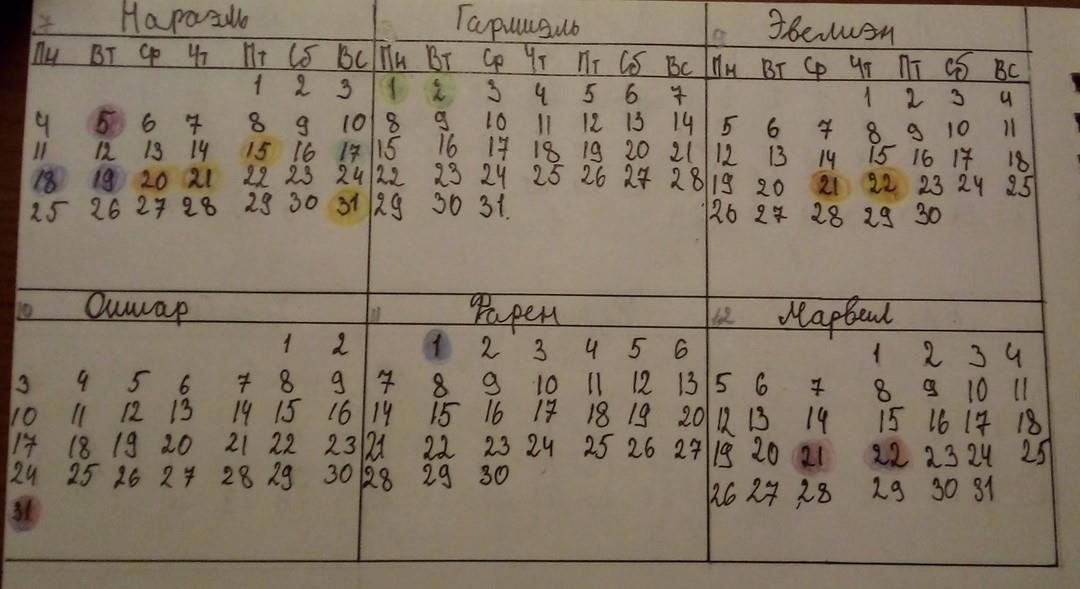 7 Нараэль
Пн Вт Ср Чт Пт Сб Вс
1 2 3
4 5 6 7 8 9 10
11 12 13 14 15 16 17
18 19 20 21 22 23 24
25 26 27 28 29 30 31
Гармиэль
Пн Вт Ср Чт Пт Сб Вс
1 2 3 4 5 6 7
8 9 10 11 12 13 14
15 16 17 18 19 20 21
22 23 24 25 26 27 28
29 30 31.
9 Эвелиэн
Пн Вт Ср Чт Пт Сб Вс
1 2 3 4
5 6 7 8 9 10 11
12 13 14 15 16 17 18
19 20 21 22 23 24 25
26 27 28 29 30
10 Ошшар
1 2
3 4 5 6 7 8 9
10 11 12 13 14 15 16
17 18 19 20 21 22 23
24 25 26 27 28 29 30
31
11 Фарен
1 2 3 4 5 6
7 8 9 10 11 12 13
14 15 16 17 18 19 20
21 22 23 24 25 26 27
28 29 30
12 Марвеил
1 2 3 4
5 6 7 8 9 10 11
12 13 14 15 16 17 18
19 20 21 22 23 24 25
26 27 28 29 30 31